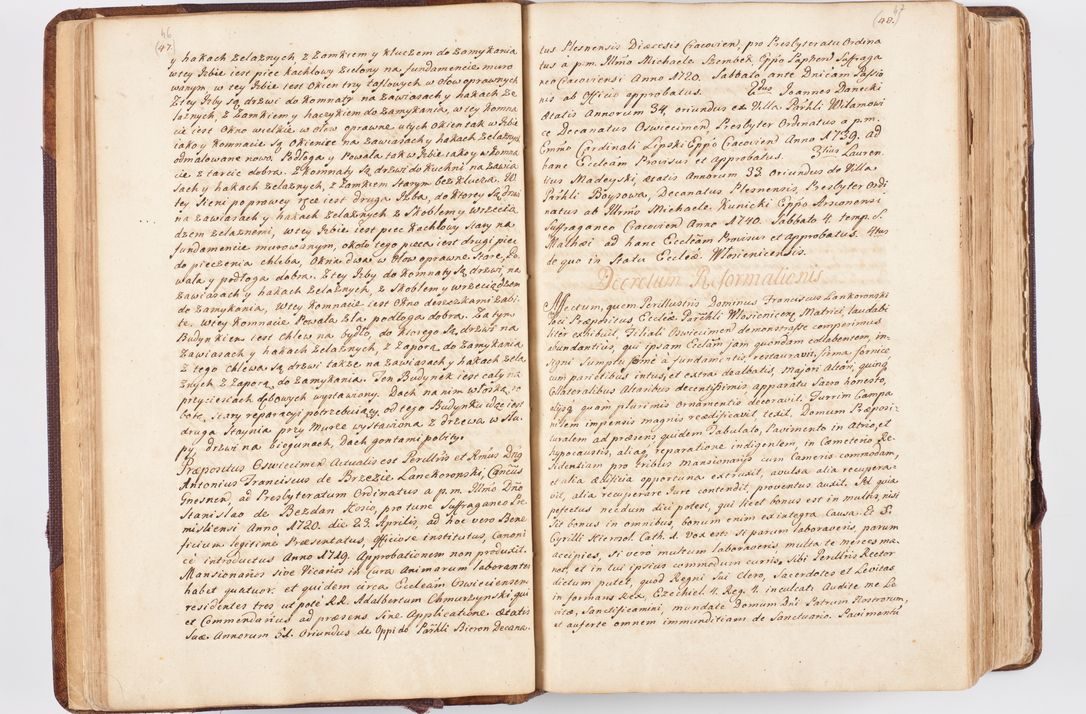 46
(47.
y hakach żelaznych, z zamkiem y kluczem do zamykania
w tey Jzbie iest piec kachlowy zielony na fundamencie muro
wanym, w tey Jzbie iest okien trzy taflowych w ołow oprawnych
Z tey Jzby są drzwi do komnaty na zawiasach y hakach że
laznych, z zamkiem y haczykiem do zamykania, w tey komna
cie iest okno wielkie w ołow oprawne, u tych okien tak w Jzbie
iako y komnacie są okienice na zawiasach y hakach żelaznych
odmalowane nowo. Podłoga y Powała tak w Jzbie iako y w komna
cie z tarcic dobra. Z komnaty są drzwi do kuchni na zawia
sach y hakach żelaznych, z zamkiem starym bez klucza. W
tey sieni po prawey ręce iest druga Jzba, do ktorey są drzwi
na zawiasach y hakach żelaznych z skoblem y wrzecią
dzem żelaznemi, w tey Jzbie iest piec kachlowy stary na
fundamencie murowanym, około tego pieca iest drugi piec
do pieczenia chleba, okna dwa w ołow oprawne stare, Po
wała y podłoga dobra. Z tey Jzby do komnaty są drzwi na
zawiasach y hakach żelaznych, z skoblem y wrzeciądzem
do zamykania, w tey komnacie iest okno deszczkami zabi
te. W tey komnacie Powała zła podłoga dobra. Za tym
Budynkiem iest chlew na bydło, do ktorego są drzwi na
zawiasach y hakach żelaznych, z zaporą do zamykania
Z tego chlewa są drzwi także na zawiasach y hakach żela
znych z zaporą do zamykania. Ten Budynek iest cały na
przyciesiach dębowych wystawiony. Dach na nim w sobie
stary reparacyi potrzebuiący, od tego Budynku idąc iest
druga staynia przy murze wystawiona z drzewa w słu
py, drzwi na biegunach, dach gontami pobity.
Præpositus Oswiecimen Actualis est Perillris et Rmus Dnus
Antonius Franciscus de Brzezie Lanckoronski, Cancus
Gnesnen, ad Presbyteratum Ordinatus a p.m. Illmo Dno
Stanislao de Bezdan Hosio, pro tunc Suffraganeo Pre
misliensi Anno 1720. die 23. Aprilis, ad hoc vero Bene
ficium legitime Præsentatus, Officiose institutus, Canoni
ce introductus Anno 1749. Approbationem non produxit.
Mansionarios sive Vicarios in Cura Animarum laborantes
habet quatuor. et quidem circa Eccleam Oswieciensem
residentes tres ut pote RR. Adalbertum Chmurzynski, qui
et Commendarius ad præsens sine Applicatione ætatis
suæ Annorum 51. Oriundus de Oppido Parhli Bieron Decana.
47
(48.
tus Plesnensis Diæcesis Cracovien, pro Presbyteratu Ordina
tus à p.m. Illmo Michaele Szembek Eppo Paphen Suffraga
neo Cracoviensi Anno 1720. Sabbato ante Dnicam Passio
nis ab Officio approbatus. 2dus Joannes Danecki
ætatis Annorum 34. oriundus ex Villa Parhli Wilamowi
ce Decanatus Oswiecimen, Presbyter Ordinatus a p.m.
Emno Cardinali Lipski Eppo Cracovien Anno 1739. ad
hanc Eccleam Provisus et Approbatus. 3tius Lauren
tius Madeyski, ætatis Annorum 33 Oriundus de Villa
Parhli Boysowa, Decanatus Plesnensis, Presbyter Ordi
natus ab Illrmo Michaele Kunicki Eppo Arsonensi
Suffraganeo Cracovien Anno 1740. Sabbato 4. temp. S.
Mathæi ad hanc Eccleam Provisus et Approbatus. 4tus
de quo in Statu Eccleæ Włosienicensis.
Decretum Reformationis
Affectum, quem Perillustris Dominus Franciscus Lankoronski
loci Præpositus Eccleæ Parhli Włosienicen Matrici, laudabi
liter exhibuit Filiali Oswiecimen demonstrasse comperimus
abundantius, qui ipsam Ecclam jam quondam collabentem, in
signi sumptu ferme à fundamentis restauravit, firma fornice
cum parietibus intus et extra dealbatis, Majori Altari, quinq
Collateralibus Altaribus decentissimis apparatu Sacro honesto,
aliisq quam plurimis ornamentis decoravit. Turrim Campa
nilem impensis magnis reædificavit texit. Domum Præposi-
turalem ad præsens quidem Tabulato, Pavimento in Atrio, et
hypocaustis, aliaq reparatione indigentem, in Cæmeterio Re-
sidentiam pro tribus mansionariis cum Cameris commodam,
et alia ædificia opportuna extruxit, avulsa alia recupera-
vit, alia recuperare Jure contendit, proventus auxit. Ast quia
perfectus necdum dici potest, qui licet bonus est in multis, nisi
sit bonus in omnibus, bonum enim ex integra Causa. Et S.
Cyrilli Hierosol. Cath. 1. Vox est: si parum laboraveris, parum
accipies, si vero multum laboraveris multa te merces ma
net, et in tui ipsius commodum curris, sibi Perillris Rector
dictum putet, quod Regni sui Clero, Sacerdotes et Levitas
informans Rex, Ezechiel 4. Reg. 4. inculcat: Audite me Le
vitæ, Sanctificamini, mundate Domum Dni Patrum Vestrorum,
et auferte omnem immunditiam de Sanctuario. Pavimentu